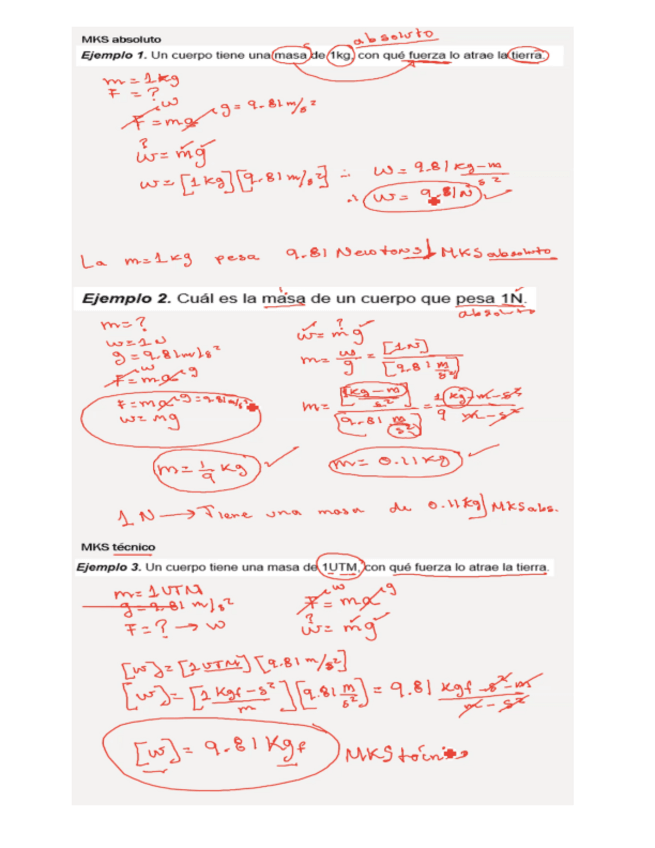 MKS absoluto
absoluto
Ejemplo 1. Un cuerpo tiene una masa de 1kg, con qué fuerza lo atrae la tierra.
m = 1kg
F = ?
w
F = ma g g = 9.81 m/s²
?
w = mg
w = [1kg][9.81 m/s²] ∴ w = 9.81 kg-m/s²
∴ w = 9.81N
La m=1kg pesa 9.81 Newtons] MKS absoluto
Ejemplo 2. Cuál es la masa de un cuerpo que pesa 1N.
absoluto
m = ? w = mg
w = 1N m = w/g = [1N]/[9.81 m/s²]
g = 9.81 m/s²
w
F = ma g
F = ma g = 9.81 m/s² m = [1kg-m/s²]/[9.81 m/s²] = 1 kg-m-s²/9 m-s²
w = mg
m = 1/9 kg m = 0.11 kg
1N → Tiene una masa de 0.11kg] MKS abs.
MKS técnico
Ejemplo 3. Un cuerpo tiene una masa de 1UTM, con qué fuerza lo atrae la tierra.
m = 1UTM F = ma w g
g = 9.81 m/s² ? w = mg
F = ? → w
[w] = [1UTM][9.81 m/s²]
[w] = [1 Kgf-s²/m][9.81 m/s²] = 9.81 kgf-s²-m/m-s²
[w] = 9.81 Kgf MKS técnico